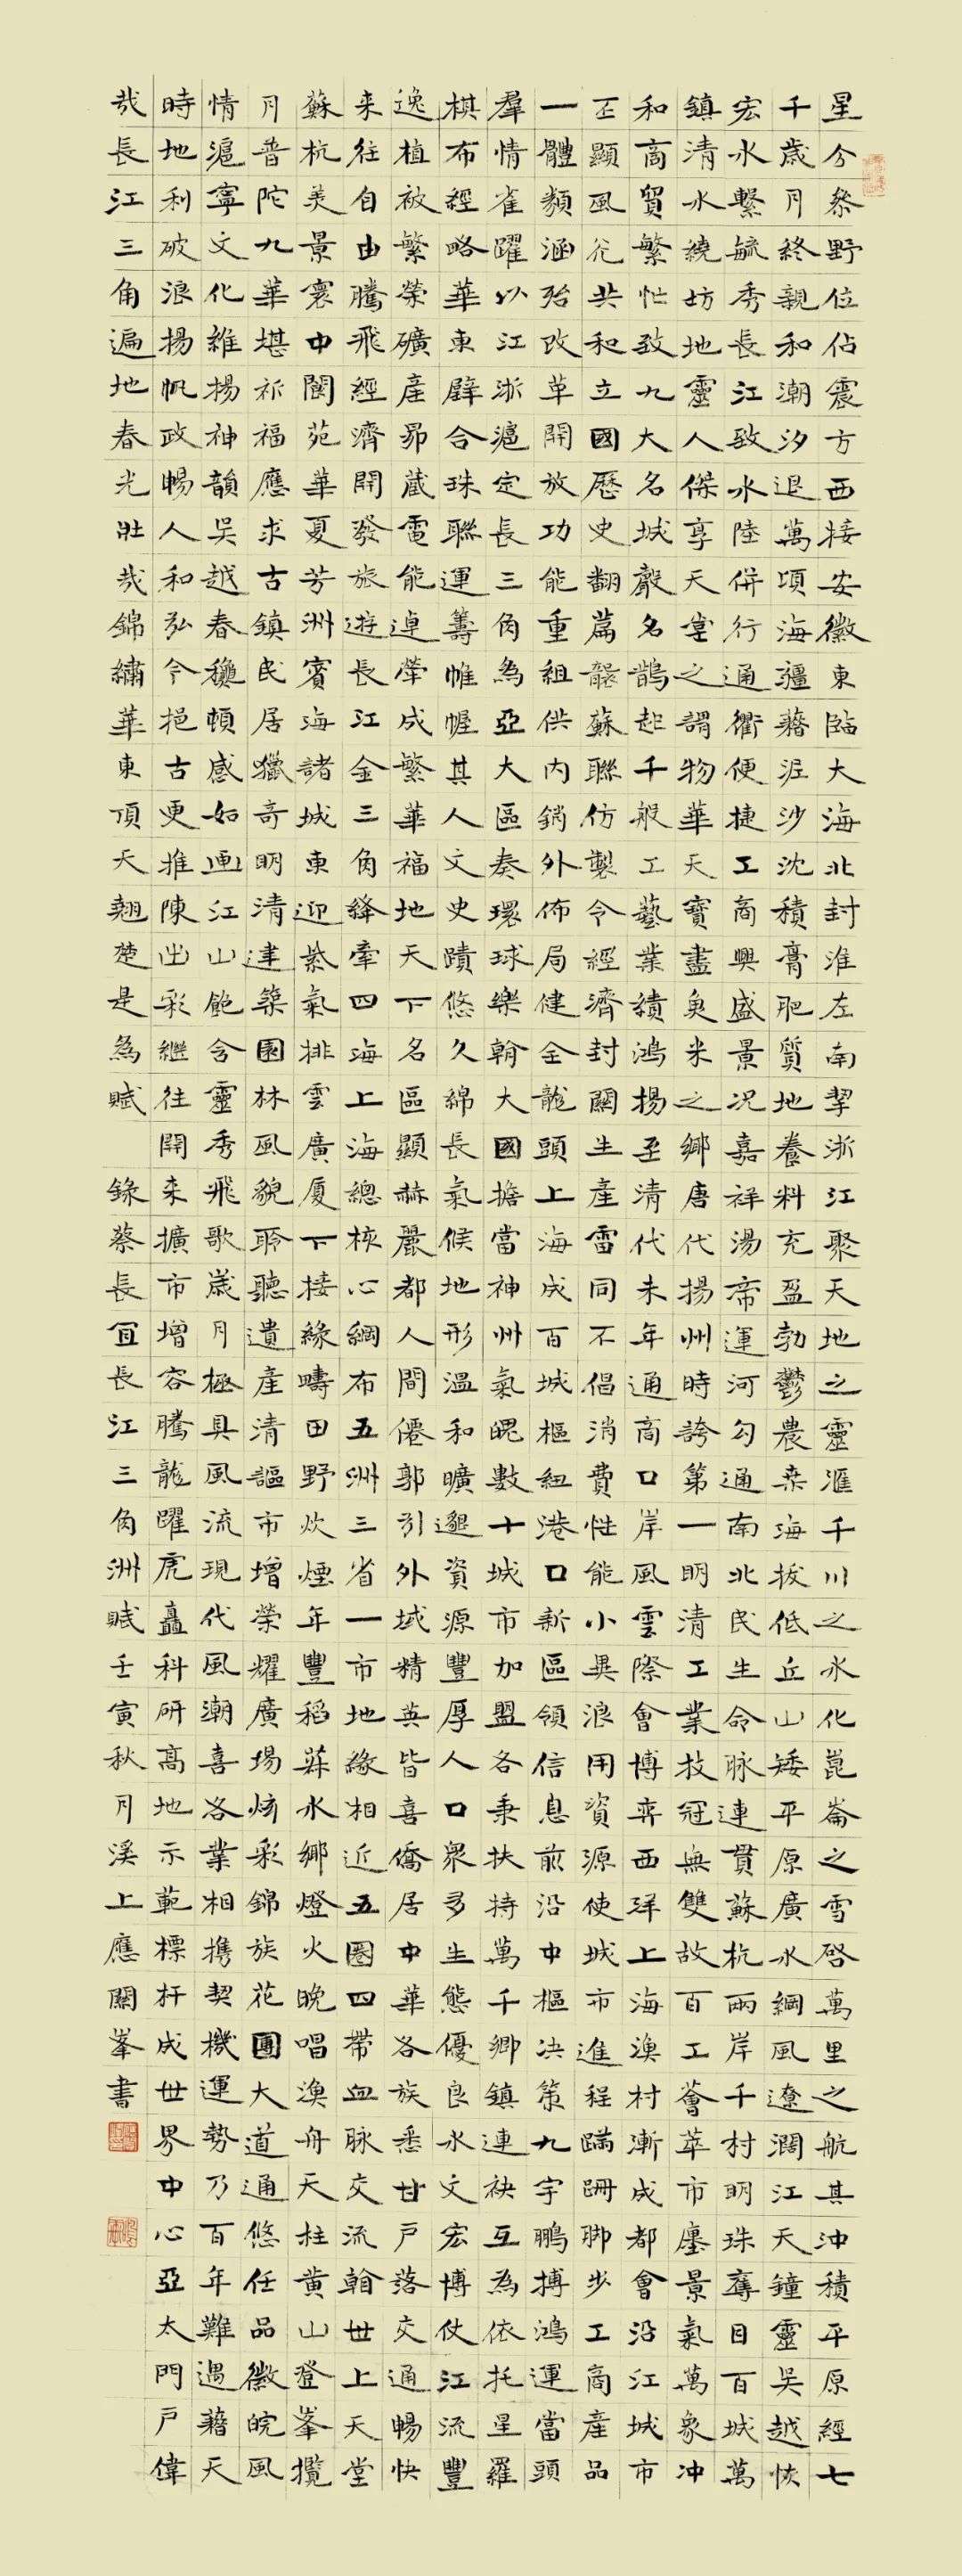 星分祭野位佔震方西接安徽東臨大海北封淮左南挈浙江聚天地之靈滙千川之水化崑崙之雪啓萬里之航其沖積平原經七
千歲月終親和潮汐退萬頃海疆藉泥沙沈積膏肥質地養料充盈勃鬱農桒海拔低丘山矮平原廣水網風遼濶江天鐘靈吳越恢
宏水繫毓秀長江致水陸併行通衢便捷工商興盛景况嘉祥湯帝運河勾通南北民生命脉連貫蘇杭兩岸千村明珠奪目百城萬
鎮清水繞坊地靈人傑享天堂之謂物華天寶盡魚米之鄉唐代揚州時誇第一明清工業技冠無雙故百工薈萃市廛景氣萬象冲
和商貿繁忙致九大名城聲名鵲起千般工藝業績鴻揚至清代末年通商口岸風雲際會博弈西洋上海漁村漸成都會沿江城市
丕顯風光共和立國歷史翻篇襲蘇聯仿製令經濟封關生產雷同不倡消費性能小異浪用資源使城市進程蹣跚聊步工商產品
一體類涵殆改革開放功能重組供内銷外佈局健全龍頭上海成百城樞紐港口新區領信息前沿中樞决策九宇鵬搏鴻運當頭
羣情雀躍以江浙滬定長三角為亞大區奏環球樂翰大國擔當神州氣魄數十城市加盟各秉扶持萬千鄉鎮連袂互為依托星羅
棋布經略華東辟合珠聯運籌帷幄其人文史蹟悠久綿長氣候地形溫和曠邈資源豐厚人口衆多生態優良水文宏博仗江流豐
逸植被繁榮礦產昴藏電能卓犖成繁華福地天下名區顯赫麗都人間僊郭引外域精英皆喜僑居中華各族悉甘戶落交通暢快
来往自由騰飛經濟開發旅遊長江金三角絳牽四海上海總核心網布五洲三省一市地緣相近五圈四帶血脉交流翰世上天堂
蘇杭美景寰中閬苑華夏芳洲賓海諸城東迎紫氣排雲廣厦下接綠疇田野炊煙年豐稻蔴水鄉燈火晚唱漁舟天柱黃山登峯攬
月普陀九華堪祈福應求古鎮民居獵奇明清建築園林風貌聆聽遺產清謳市增榮耀廣場炫彩錦族花圃大道通悠任品徽皖風
情滬寧文化維揚神韻吳越春穐頓感如畫江山飽含靈秀飛歌歲月極具風流現代風潮喜各業相携契機運勢乃百年難遇藉天
時地利破浪揚帆政暢人和弘今挹古更推陳出彩繼往開来擴市增容騰龍躍虎矗科研高地示範標杆成世界中心亞太門戶偉
哉長江三角遍地春光壯哉錦繡華東頂天翹楚是為賦 錄蔡長宜長江三角洲賦壬寅秋月溪上應關峯書